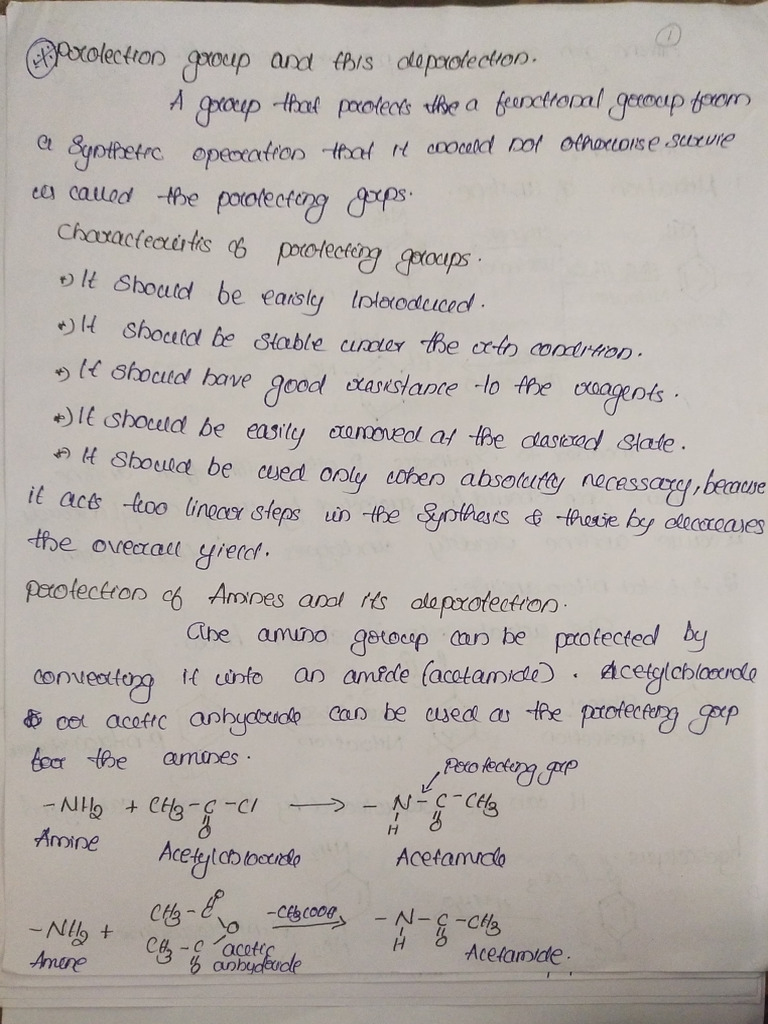 ①
* Protection group and this deprotection.
A group that protects the a functional group from
a synthetic operation that it would not otherwise survie
is called the protecting grps.
Characteristis of protecting groups.
→) It should be earisly Introduced.
→) It should be stable under the rxtn condition.
→) It should have good resistance to the reagents.
→) It should be easily removed at the desired state.
→) It should be used only when absolutly necessary, because
it acts two linear steps in the synthesis & therie by decreases
the overall yield.
Protection of Amines and its deprotection.
The amino group can be protected by
converting it into an amide (acetamide). Acetylchloride
or acetic anhydride can be used as the protecting grp
for the amines.
Protecting grp
-NH2 + CH3-C-Cl → -N-C-CH3
O H O
Amine Acetylchloride Acetamide
CH3-C O
-NH2 + O -CH3COOH → -N-C-CH3
CH3-C acetic H O
Amine O anhydride Acetamide.